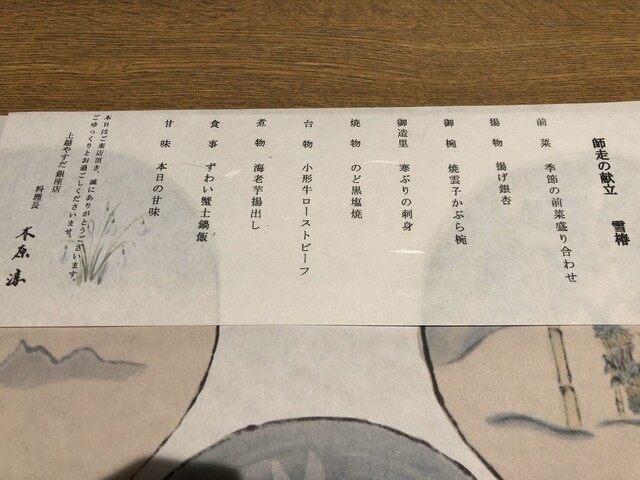 師走の献立　雪椿
前菜　季節の前菜盛り合わせ
揚物　揚げ銀杏
御椀　焼雲子かぶら椀
御造里　寒ぶりの刺身
焼物　のど黒塩焼
台物　小形牛ローストビーフ
煮物　海老芋揚出し
食事　ずわい蟹土鍋飯
甘味　本日の甘味
本日はご来店頂き、誠にありがとうございます。
ごゆっくりとお過ごしくださいませ。
上越やすだ 銀座店
料理長
木原 淳